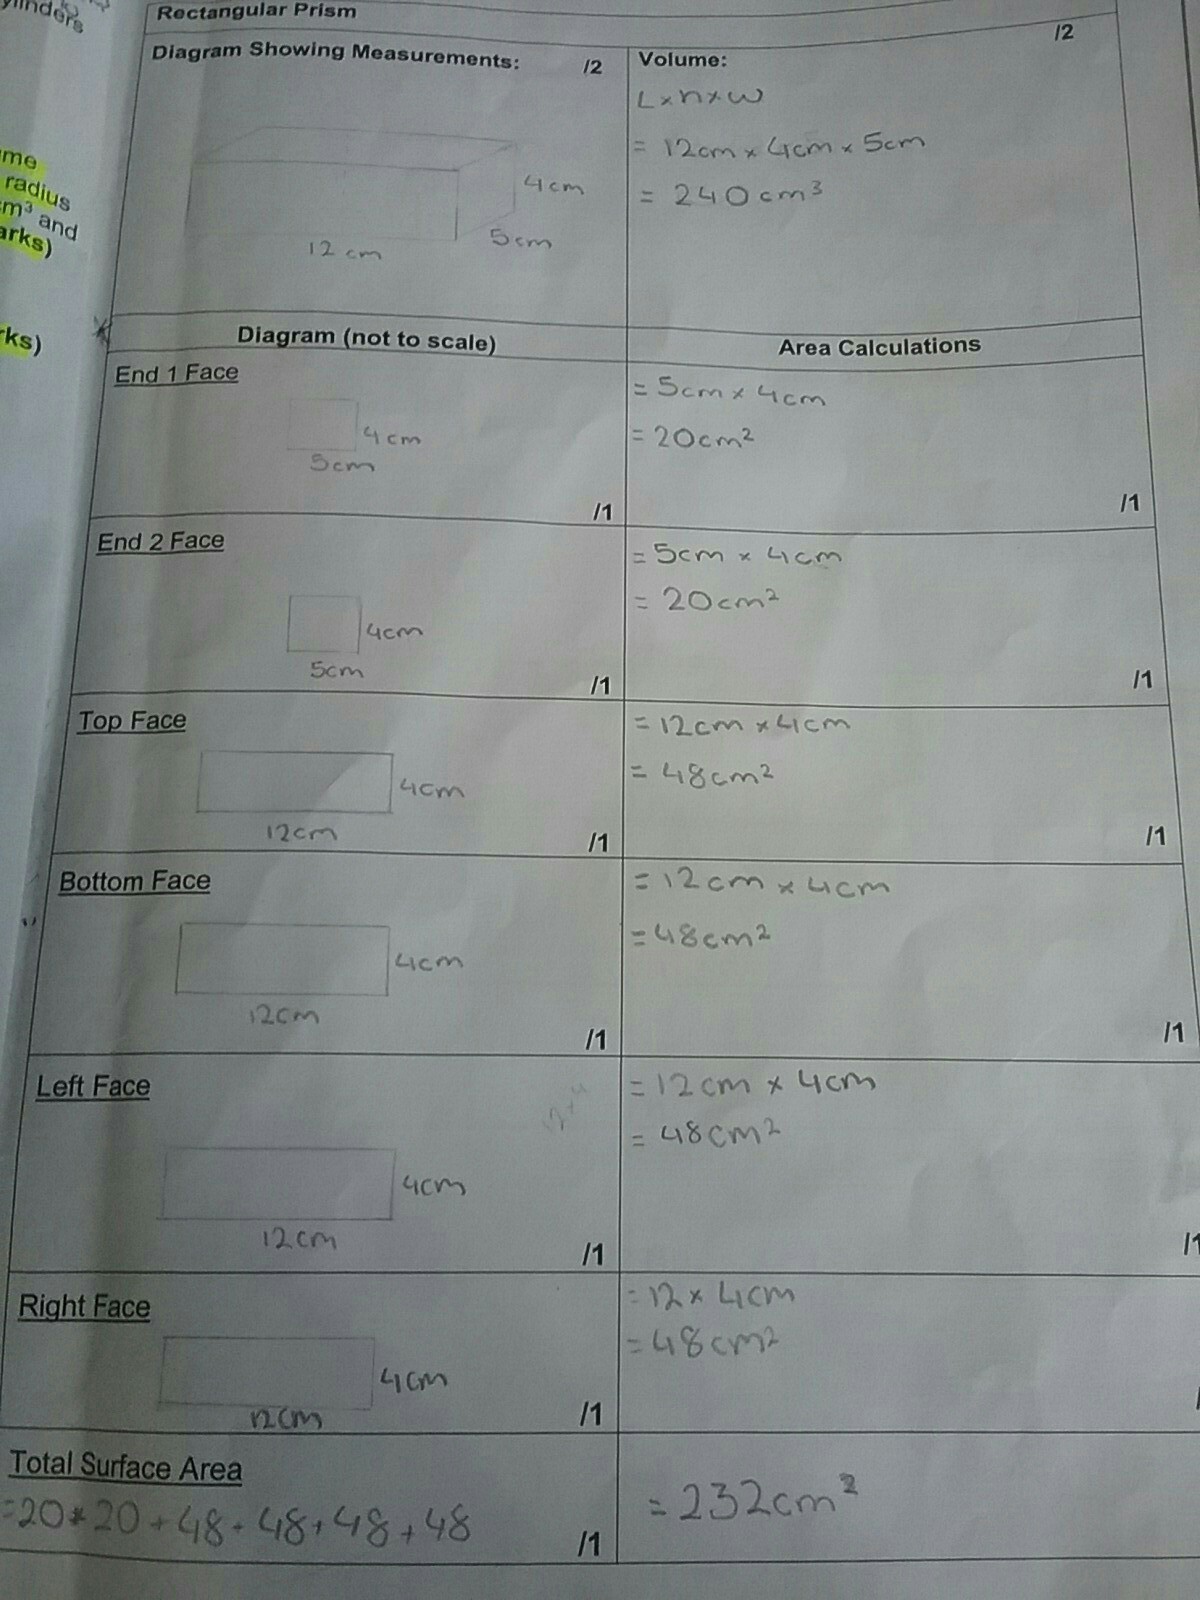 ylinders
me
radius
m³ and
arks)
rks)
Rectangular Prism
Diagram Showing Measurements: /2
4cm
5cm
12 cm
Volume: /2
L×h×w
= 12cm × 4cm × 5cm
= 240cm³
Diagram (not to scale)
Area Calculations
End 1 Face
4cm
5cm
/1
= 5cm × 4cm
= 20cm²
/1
End 2 Face
4cm
5cm
/1
= 5cm × 4cm
= 20cm²
/1
Top Face
4cm
12cm
/1
= 12cm × 4cm
= 48cm²
/1
Bottom Face
4cm
12cm
/1
= 12cm × 4cm
= 48cm²
/1
Left Face
4cm
12cm
/1
= 12cm × 4cm
= 48cm²
/1
Right Face
4cm
12cm
/1
= 12 × 4cm
= 48cm²
/
Total Surface Area
= 20 + 20 + 48 + 48 + 48 + 48
/1
= 232cm²